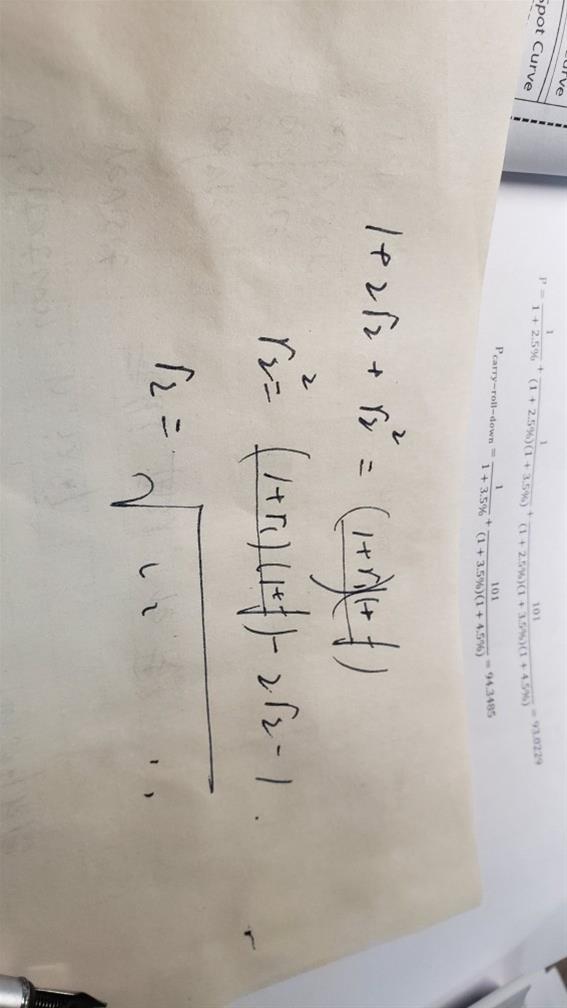 urve
Spot Curve
P = 1/(1 + 2.5%) + 1/((1 + 2.5%)(1 + 3.5%)) + 101/((1 + 2.5%)(1 + 3.5%)(1 + 4.5%)) = 93.0229
P carry-roll-down = 1/(1 + 3.5%) + 101/((1 + 3.5%)(1 + 4.5%)) = 94.3485
1+2r2 + r2² = (1+r1)(1+f)
r2² = (1+r1)(1+f) - 2r2 - 1
r2 = √ 〃 〃